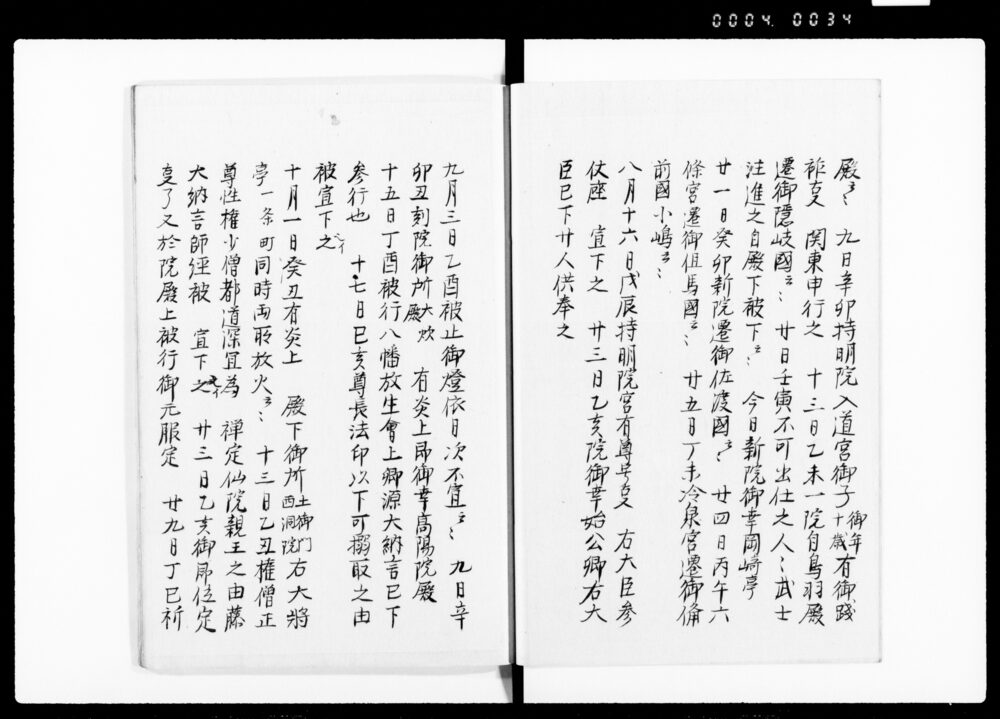 0004 0034
殿云々 九日辛卯持明院入道宮御子御年十歳有御踐
祚㕝 関東申行之 十三日乙未一院自鳥羽殿
遷御隠岐國云々 廿日壬寅不可出仕之人々武士
注進之自殿下被下云々 今日新院御幸岡崎亭
廿一日癸卯新院遷御佐渡國云々 廿四日丙午六
條宮遷御但馬國云々 廿五日丁未冷泉宮遷御備
前國小嶋云々
八月十六日戊辰持明院宮有尊号㕝 右大臣参
仗座 宣下之 廿三日乙亥院御幸始公卿右大
臣已下廿人供奉之
九月三日乙酉被止御燈依日次不宜云々 九日辛
卯丑刻院御所大炊殿 有炎上即御幸高陽院殿
十五日丁酉被行八幡放生會上卿源大納言已下
参行也 十七日己亥尊長法印以下可搦取之由
被宣下之
十月一日癸丑有炎上 殿下御所土御門西洞院右大將
亭一条町同時両所放火云々 十三日乙丑権僧正
尊性権少僧都道深冝為 禅定仙院親王之由藤
大納言師経被 宣下之 廿三日乙亥御即位定
㕝了又於院殿上被行御元服定 廿九日丁巳祈